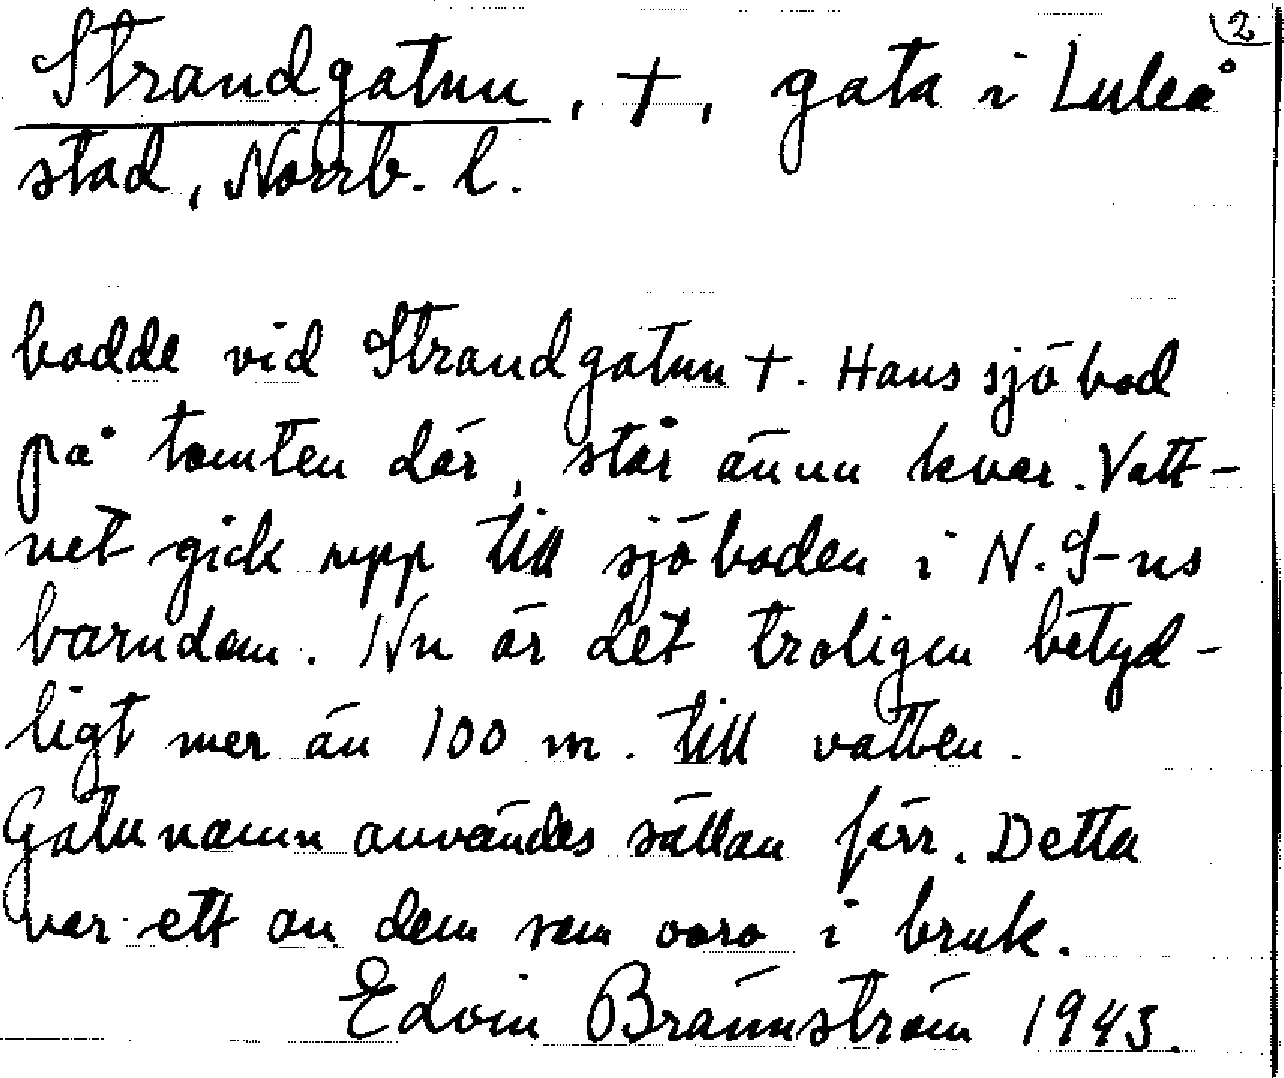 2
Strandgatun, +, gata i Luleå
stad, Norrb. l.
bodde vid Strandgatun +. Hans sjöbod
på tomten där, står ännu kvar. Vatt-
net gick upp till sjöboden i N. S-ns
barndom. Nu är det troligen betyd-
ligt mer än 100 m. till vatten.
Gatunamn användes sällan förr. Detta
var ett av dem som voro i bruk.
Edvin Brännström 1943.